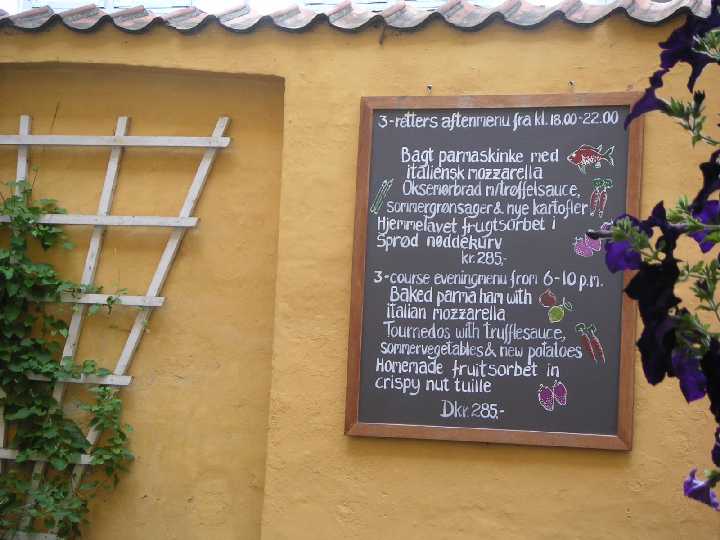 3-retters aftenmenu fra kl.18.00-22.00
Bagt parmaskinke med
italiensk mozzarella
Oksemørbrad m/trøffelsauce,
sommergrønsager & nye kartofler
Hjemmelavet frugtsorbet i
Sprød nøddekurv
kr.285,-
3-course eveningmenu from 6-10 p.m.
Baked parma ham with
italian mozzarella
Tournedos with trufflesauce,
sommervegetables & new potatoes
Homemade fruitsorbet in
crispy nut tuille
Dkr.285,-